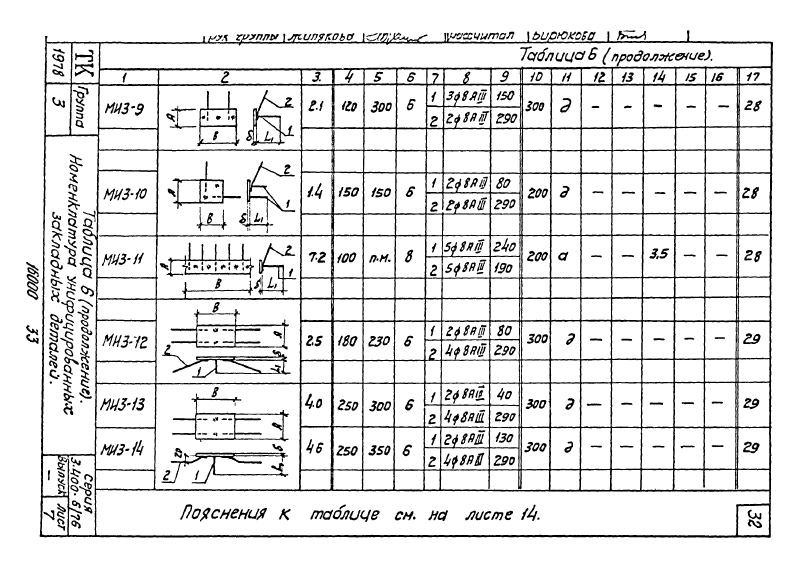 Рук группы Жилякова Рассчитал Бирюкова
Таблица 6 (продолжение).
1 2 3. 4 5 6 7 8 9 10 11 12 13 14 15 16 17
МИЗ-9 2.1 120 300 6 1 3ф8АIII 150 300 д – – – – – 28
2 2ф8АIII 290
В δ L₁ 1 2
МИЗ-10 1.4 150 150 6 1 2ф8АIII 80 200 д – – – – – 28
2 2ф8АIII 290
В δ L₁ 1 2
МИЗ-11 7.2 100 п.м. 8 1 5ф8АIII 240 200 а – – 3.5 – – 28
2 5ф8АIII 190
В δ L₁ 1 2
МИЗ-12 2.5 180 230 6 1 2ф8АIII 80 300 д – – – – – 29
2 4ф8АIII 290
В 2 1
МИЗ-13 4.0 250 300 6 1 2ф8АIII 40 300 д – – – – – 29
2 4ф8АIII 290
В
МИЗ-14 4.6 250 350 6 1 2ф8АIII 130 300 д – – – – – 29
2 4ф8АIII 290
2 1
Пояснения к таблице см. на листе 14.
32
ТК
1978
Группа
3
Таблица 6 (продолжение).
Номенклатура унифицированных
закладных деталей.
серия
3.400-6/76
Выпуск Лист
– 7
16000 33